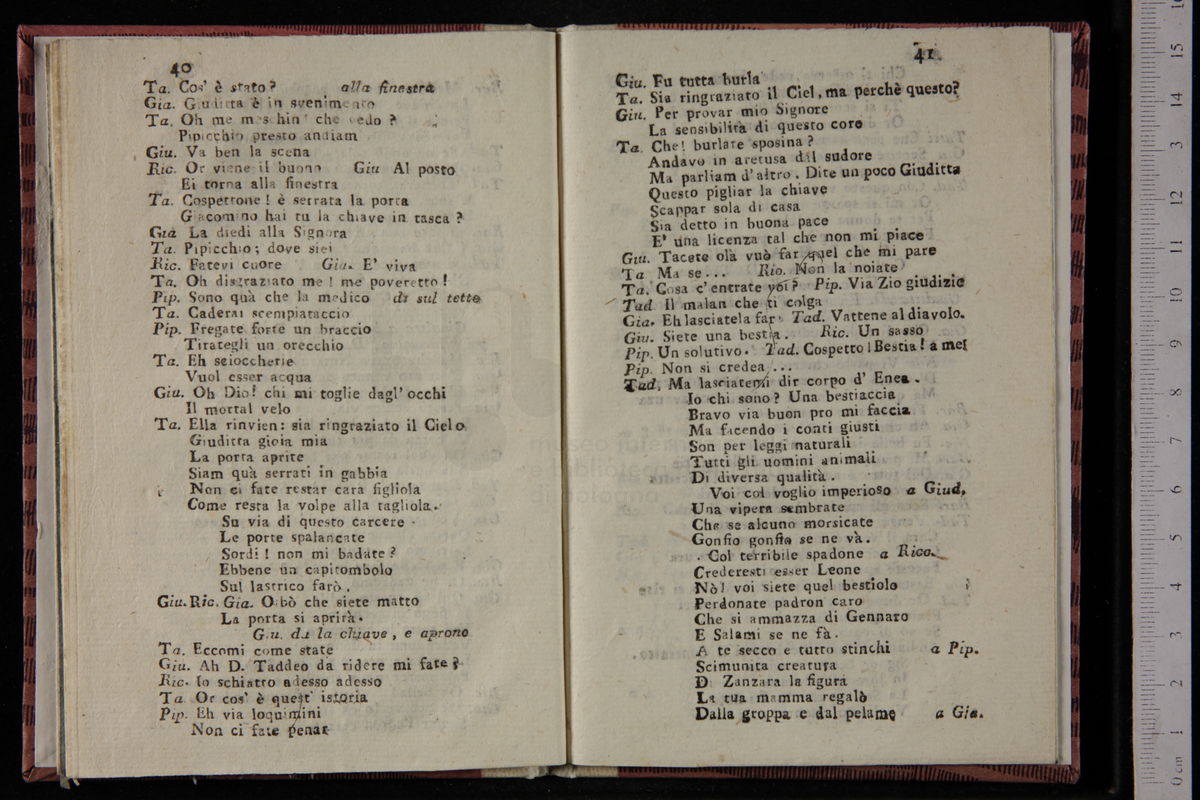 40
Ta. Cos' è stato? alla finestra
Gia. Giuditta è in svenimento
Ta. Oh me meschin' che vedo?
Pipicchio presto andiam
Giu. Va ben la scena
Ric. Or viene il buono Giu Al posto
Ei torna alla finestra
Ta. Cospettone! è serrata la porta
Giacomino hai tu la chiave in tasca?
Gia La diedi alla Signora
Ta. Pipicchio; dove siei
Ric. Fatevi cuore Giu. E' viva
Ta. Oh disgraziato me! me poveretto!
Pip. Sono quà che la medico di sul tetto
Ta. Caderai scempiataccio
Pip. Fregate forte un braccio
Tirategli un orecchio
Ta. Eh scioccherie
Vuol esser acqua
Giu. Oh Dio! chi mi toglie dagl' occhi
Il mortal velo
Ta. Ella rinvien: sia ringraziato il Cielo
Giuditta gioia mia
La porta aprite
Siam quà serrati in gabbia
Non ci fate restar cara figliola
Come resta la volpe alla tagliola.
Su via di questo carcere
Le porte spalancate
Sordi! non mi badate?
Ebbene un capitombolo
Sul lastrico farò.
Giu. Ric. Gia. Oibò che siete matto
La porta si aprirà.
Giu. da la chiave, e aprono
Ta. Eccomi come state
Giu. Ah D. Taddeo da ridere mi fate
Ric. Io schiatto adesso adesso
Ta. Or cos' è quest' istoria
Pip. Eh via loquimini
Non ci fate penar
41.
Giu. Fu tutta burla
Ta. Sia ringraziato il Ciel, ma perchè questo?
Giu. Per provar mio Signore
La sensibilità di questo core
Ta. Che! burlare sposina?
Andavo in aretusa dal sudore
Ma parliam d'altro. Dite un poco Giuditta
Questo pigliar la chiave
Scappar sola di casa
Sia detto in buona pace
E' una licenza tal che non mi piace
Giu. Tacete olà vuò far quel che mi pare
Ta Ma se... Rio. Non la noiate
Ta. Cosa c'entrate voi? Pip. Via Zio giudizio
Tad. Il malan che ti colga
Gia. Eh lasciatela far Tad. Vattene al diavolo.
Giu. Siete una bestia. Ric. Un sasso
Pip. Un solutivo. Tad. Cospetto! Bestia! a me!
Pip. Non si credea...
Tad. Ma lasciatemi dir corpo d' Enea.
Io chi sono? Una bestiaccia
Bravo via buon pro mi faccia
Ma facendo i conti giusti
Son per leggi naturali
Tutti gli uomini animali
Di diversa qualità.
Voi col voglio imperioso a Giud.
Una vipera sembrate
Che se alcuno morsicate
Gonfio gonfio se ne và.
Col terribile spadone a Ricc.
Crederesti esser Leone
Nò! voi siete quel bestiolo
Perdonate padron caro
Che si ammazza di Gennaro
E Salami se ne fà.
A te secco e tutto stinchi a Pip.
Scimunita creatura
D. Zanzara la figura
La tua mamma regalò
Dalla groppa e dal pelame a Gia.